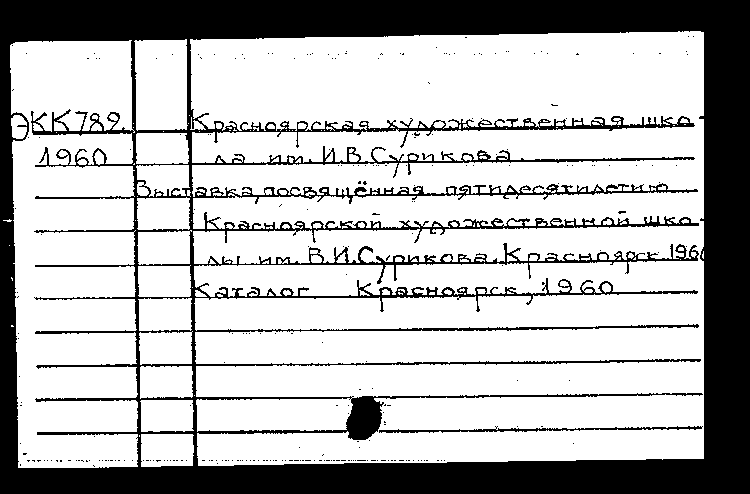 ЭКК789. Красноярская художественная шко-
1960 ла им. И.В.Сурикова.
Выставка, посвящённая пятидесятилетию
Красноярской художественной шко-
лы им. В.И.Сурикова. Красноярск 1960
Каталог Красноярск, 1960